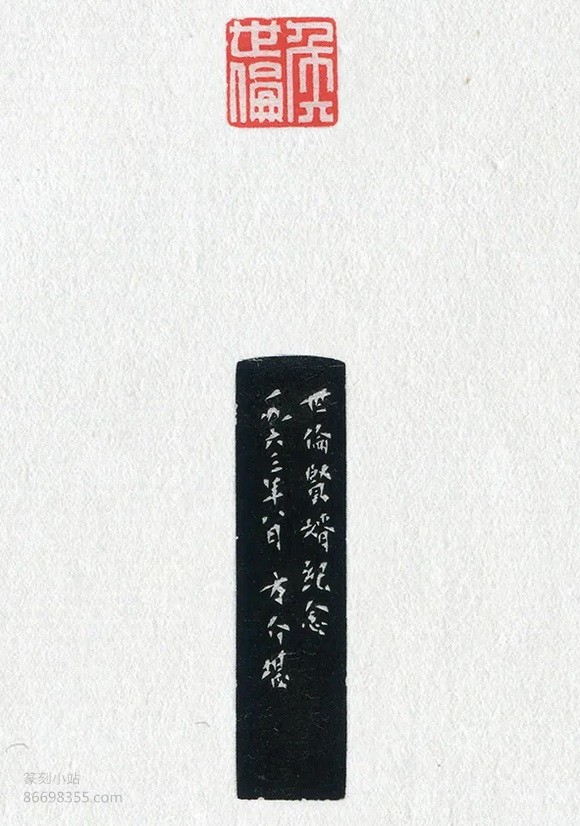 世倫
世倫賢婿紀念
一九六三年八月 方介堪
篆刻小站
86698355.com